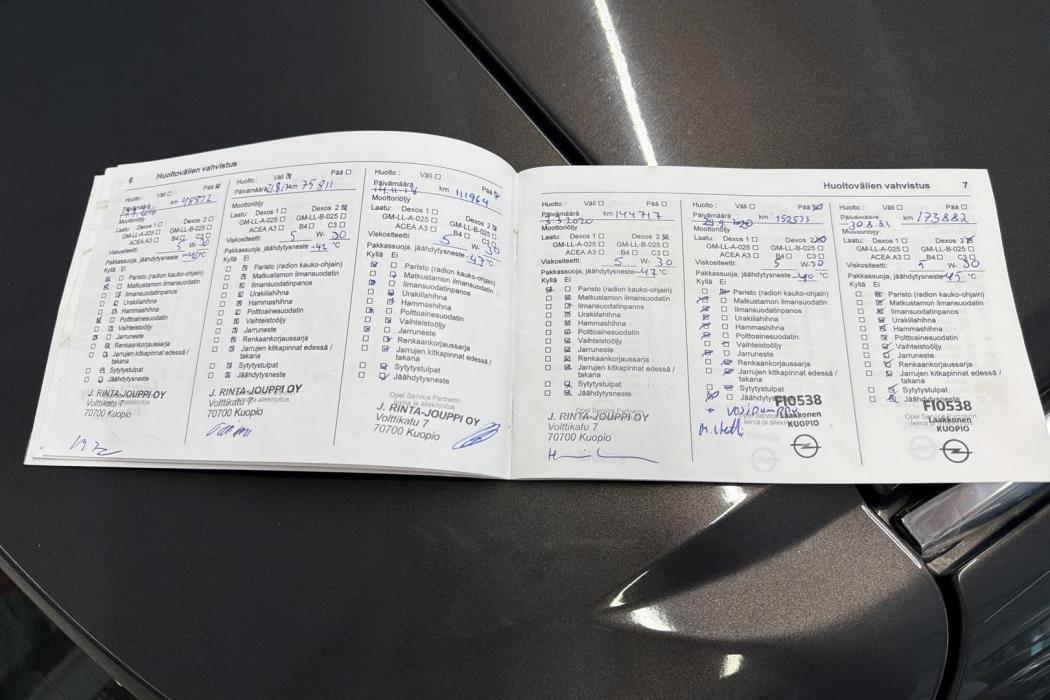 6 Huoltovälien vahvistus
Väli Pää
km 48872
Moottoriöljy
Laatu: Dexos 1 Dexos 2
GM-LL-A-025 GM-LL-B-025
ACEA A3 B4 C3
Viskositeetti: 5 W- 30
Pakkassuoja, jäähdytysneste °C
Kyllä Ei
Paristo (radion kauko-ohjain)
Matkustamon ilmansuodatin
Ilmansuodatinpanos
Urakiilahihna
Hammashihna
Polttoainesuodatin
Vaihteistoöljy
Jarruneste
Renkaankorjaussarja
Jarrujen kitkapinnat edessä /
takana
Sytytystulpat
Jäähdytysneste
J. RINTA-JOUPPI OY
Volttikatu 7
70700 Kuopio
Huolto: Väli Pää
Päivämäärä km 75811
Moottoriöljy
Laatu: Dexos 1 Dexos 2
GM-LL-A-025 GM-LL-B-025
ACEA A3 B4 C3
Viskositeetti: 5 W- 30
Pakkassuoja, jäähdytysneste -42 °C
Kyllä Ei
Paristo (radion kauko-ohjain)
Matkustamon ilmansuodatin
Ilmansuodatinpanos
Urakiilahihna
Hammashihna
Polttoainesuodatin
Vaihteistoöljy
Jarruneste
Renkaankorjaussarja
Jarrujen kitkapinnat edessä /
takana
Sytytystulpat
Jäähdytysneste
J. RINTA-JOUPPI OY
Volttikatu 7
70700 Kuopio
Huolto: Väli Pää
Päivämäärä km 111964
Moottoriöljy
Laatu: Dexos 1 Dexos 2
GM-LL-A-025 GM-LL-B-025
ACEA A3 B4 C3
Viskositeetti: 5 W- 30
Pakkassuoja, jäähdytysneste -47 °C
Kyllä Ei
Paristo (radion kauko-ohjain)
Matkustamon ilmansuodatin
Ilmansuodatinpanos
Urakiilahihna
Hammashihna
Polttoainesuodatin
Vaihteistoöljy
Jarruneste
Renkaankorjaussarja
Jarrujen kitkapinnat edessä /
takana
Sytytystulpat
Jäähdytysneste
Opel Service Partnerin
leima ja allekirjoitus
J. RINTA-JOUPPI OY
Volttikatu 7
70700 Kuopio
Huoltovälien vahvistus 7
Huolto: Väli Pää
Päivämäärä km 144717
3.3.2020
Moottoriöljy
Laatu: Dexos 1 Dexos 2
GM-LL-A-025 GM-LL-B-025
ACEA A3 B4 C3
Viskositeetti: 5 W- 30
Pakkassuoja, jäähdytysneste -47 °C
Kyllä Ei
Paristo (radion kauko-ohjain)
Matkustamon ilmansuodatin
Ilmansuodatinpanos
Urakiilahihna
Hammashihna
Polttoainesuodatin
Vaihteistoöljy
Jarruneste
Renkaankorjaussarja
Jarrujen kitkapinnat edessä /
takana
Sytytystulpat
Jäähdytysneste
Opel Service Partnerin
leima ja allekirjoitus
J. RINTA-JOUPPI OY
Volttikatu 7
70700 Kuopio
Huolto: Väli Pää
Päivämäärä km 152573
Moottoriöljy
Laatu: Dexos 1 Dexos 2
GM-LL-A-025 GM-LL-B-025
ACEA A3 B4 C3
Viskositeetti: 5 W- 30
Pakkassuoja, jäähdytysneste -40 °C
Kyllä Ei
Paristo (radion kauko-ohjain)
Matkustamon ilmansuodatin
Ilmansuodatinpanos
Urakiilahihna
Hammashihna
Polttoainesuodatin
Vaihteistoöljy
Jarruneste
Renkaankorjaussarja
Jarrujen kitkapinnat edessä /
takana
Sytytystulpat
Jäähdytysneste
+ vesipumppu
FI0538
Laakkonen
KUOPIO
Huolto: Väli Pää
Päivämäärä km 173882
30.8.21
Moottoriöljy
Laatu: Dexos 1 Dexos 2
GM-LL-A-025 GM-LL-B-025
ACEA A3 B4 C3
Viskositeetti: 5 W- 30
Pakkassuoja, jäähdytysneste -45 °C
Kyllä Ei
Paristo (radion kauko-ohjain)
Matkustamon ilmansuodatin
Ilmansuodatinpanos
Urakiilahihna
Hammashihna
Polttoainesuodatin
Vaihteistoöljy
Jarruneste
Renkaankorjaussarja
Jarrujen kitkapinnat edessä /
takana
Sytytystulpat
Jäähdytysneste
FI0538
Laakkonen
KUOPIO